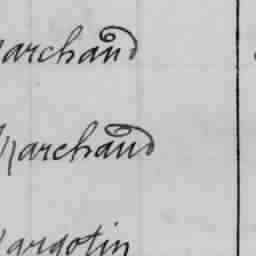 Marchand
Marchand
Margotin